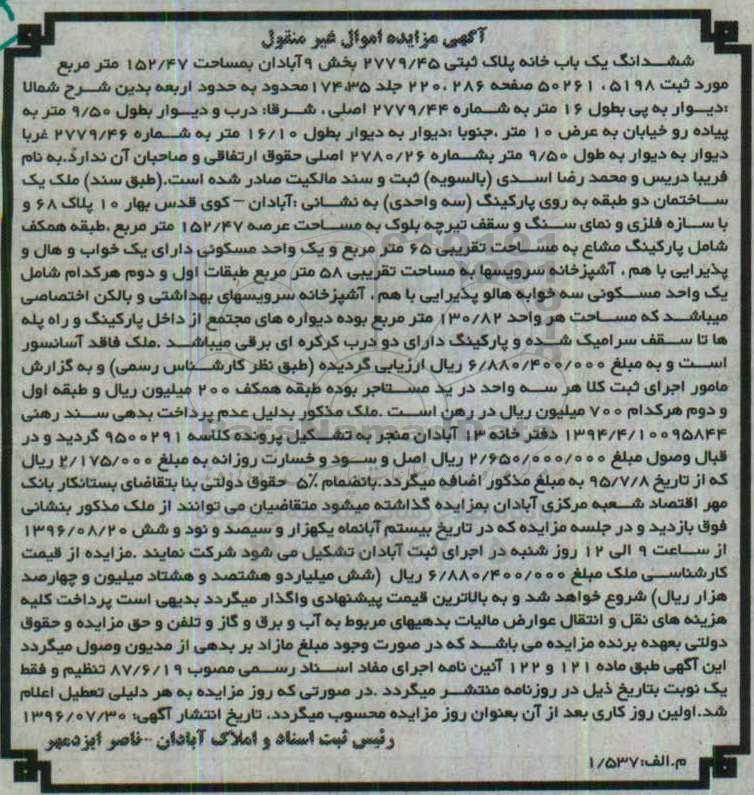 آگهی مزایده اموال غیر منقول
ششدانگ یک باب خانه پلاک ثبتی ۲۷۷۹/۴۵ بخش ۹آبادان بمساحت ۱۵۲/۴۷ متر مربع
مورد ثبت ۵۱۹۸ ، ۵۰۲۶۱ صفحه ۲۸۶ ،۲۲۰ جلد ۱۷۴،۳۵محدود به حدود اربعه بدین شرح شمالا
:دیوار به پی بطول ۱۶ متر به شماره ۲۷۷۹/۴۴ اصلی ، شرقا: درب و دیوار بطول ۹/۵۰ متر به
پیاده رو خیابان به عرض ۱۰ متر ،جنوبا :دیوار به دیوار بطول ۱۶/۱۰ متر به شماره ۲۷۷۹/۴۶ غربا
دیوار به دیوار به طول ۹/۵۰ متر بشماره ۲۷۸۰/۲۶ اصلی حقوق ارتفاقی و صاحبان آن ندارد.به نام
فریبا دریس و محمد رضا اسدی (بالسویه) ثبت و سند مالکیت صادر شده است.(طبق سند) ملک یک
ساختمان دو طبقه به روی پارکینگ (سه واحدی) به نشانی :آبادان – کوی قدس بهار ۱۰ پلاک ۶۸ و
با سازه فلزی و نمای سنگ و سقف تیرچه بلوک به مساحت عرصه ۱۵۲/۴۷ متر مربع .طبقه همکف
شامل پارکینگ مشاع به مساحت تقریبی ۶۵ متر مربع و یک واحد مسکونی دارای یک خواب و هال و
پذیرایی با هم ، آشپزخانه سرویسها به مساحت تقریبی ۵۸ متر مربع طبقات اول و دوم هرکدام شامل
یک واحد مسکونی سه خوابه هالو پذیرایی با هم ، آشپزخانه سرویسهای بهداشتی و بالکن اختصاصی
میباشد که مساحت هر واحد ۱۳۰/۸۲ متر مربع بوده دیواره های مجتمع از داخل پارکینگ و راه پله
ها تا سقف سرامیک شده و پارکینگ دارای دو درب کرکره ای برقی میباشد .ملک فاقد آسانسور
است و به مبلغ ۶/۸۸۰/۴۰۰/۰۰۰ ریال ارزیابی گردیده (طبق نظر کارشناس رسمی) و به گزارش
مامور اجرای ثبت کلا هر سه واحد در ید مستاجر بوده طبقه همکف ۲۰۰ میلیون ریال و طبقه اول
و دوم هرکدام ۷۰۰ میلیون ریال در رهن است .ملک مذکور بدلیل عدم پرداخت بدهی سند رهنی
۱۳۹۴/۴/۱۰۰۹۵۸۴۴ دفتر خانه ۱۳ آبادان منجر به تشکیل پرونده کلاسه ۹۵۰۰۲۹۱ گردید و در
قبال وصول مبلغ ۲/۶۵۰/۰۰۰/۰۰۰ ریال اصل و سود و خسارت روزانه به مبلغ ۲/۱۷۵/۰۰۰ ریال
که از تاریخ ۹۵/۷/۸ به مبلغ مذکور اضافه میگردد.بانضمام ۵٪ حقوق دولتی بنا بتقاضای بستانکار بانک
مهر اقتصاد شعبه مرکزی آبادان بمزایده گذاشته میشود متقاضیان می توانند از ملک مذکور بنشانی
فوق بازدید و در جلسه مزایده که در تاریخ بیستم آبانماه یکهزار و سیصد و نود و شش ۱۳۹۶/۰۸/۲۰
از ساعت ۹ الی ۱۲ روز شنبه در اجرای ثبت آبادان تشکیل می شود شرکت نمایند .مزایده از قیمت
کارشناسی ملک مبلغ ۶/۸۸۰/۴۰۰/۰۰۰ ریال (شش میلیاردو هشتصد و هشتاد میلیون و چهارصد
هزار ریال) شروع خواهد شد و به بالاترین قیمت پیشنهادی واگذار میگردد بدیهی است پرداخت کلیه
هزینه های نقل و انتقال عوارض مالیات بدهیهای مربوط به آب و برق و گاز و تلفن و حق مزایده و حقوق
دولتی بعهده برنده مزایده می باشد که در صورت وجود مبلغ مازاد بر بدهی از مدیون وصول میگردد
این آگهی طبق ماده ۱۲۱ و ۱۲۲ آئین نامه اجرای مفاد اسناد رسمی مصوب ۸۷/۶/۱۹ تنظیم و فقط
یک نوبت بتاریخ ذیل در روزنامه منتشر میگردد .در صورتی که روز مزایده به هر دلیلی تعطیل اعلام
شد.اولین روز کاری بعد از آن بعنوان روز مزایده محسوب میگردد. تاریخ انتشار آگهی: ۱۳۹۶/۰۷/۳۰
رئیس ثبت اسناد و املاک آبادان –ناصر ایزدمهر
م.الف:۱/۵۳۷